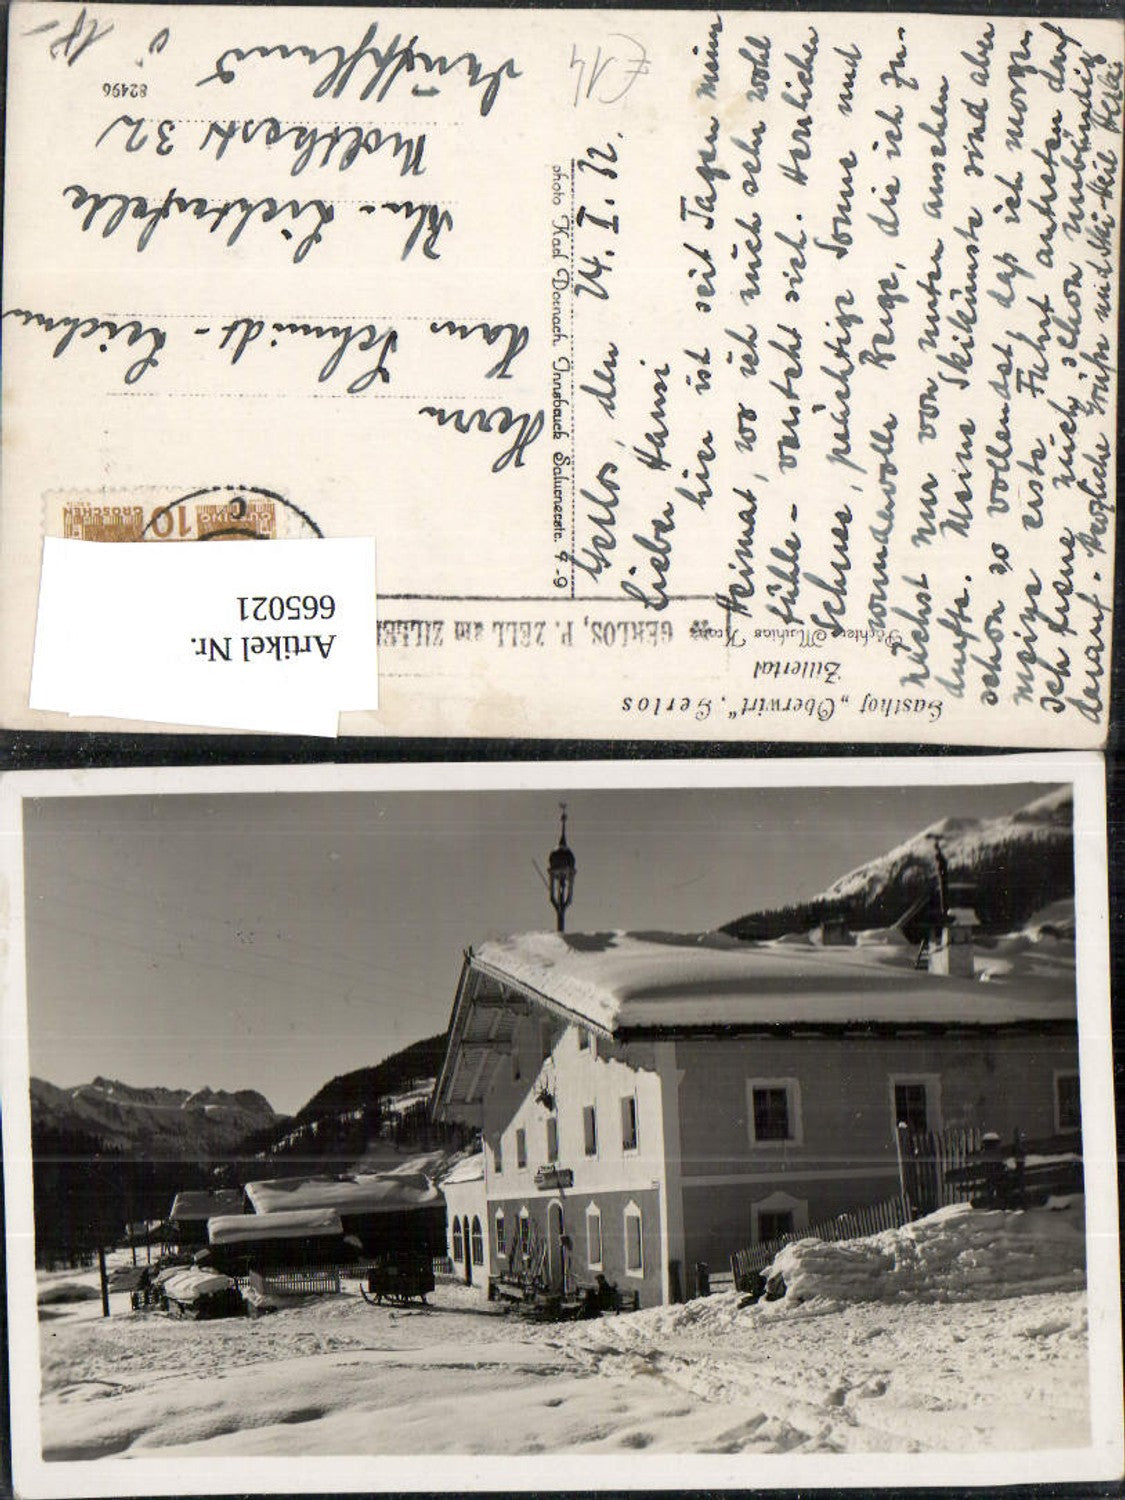 Gasthof „Oberwirt“, Gerlos
Zillertal
Pächter Mathias Kranz
GERLOS, P. ZELL am ZILLER
Gerlos, den 24. I. 32.
Lieber Hansi
hier ist seit Tagen meine
Heimat, wo ich mich sehr wohl
fühle – versteht sich. Herrlichen
Schnee, prächtige Sonne und
wundervolle Berge, die ich zu-
nächst nur von unten ansehen
durfte. Meine Skikünste sind aber
schon so vollendet, daß ich morgen
meine erste Fahrt antreten darf
Ich freue mich schon unbändig
darauf. Herzliche Grüße und Ski-Heil
photo Karl Dornach Innsbruck Salurnerstr. 4-9
Herrn
Hans Schmidt-
Bln-Lichterfelde
Moltkestr 32
82496
£14
10
GROSCHEN
Artikel Nr.
665021